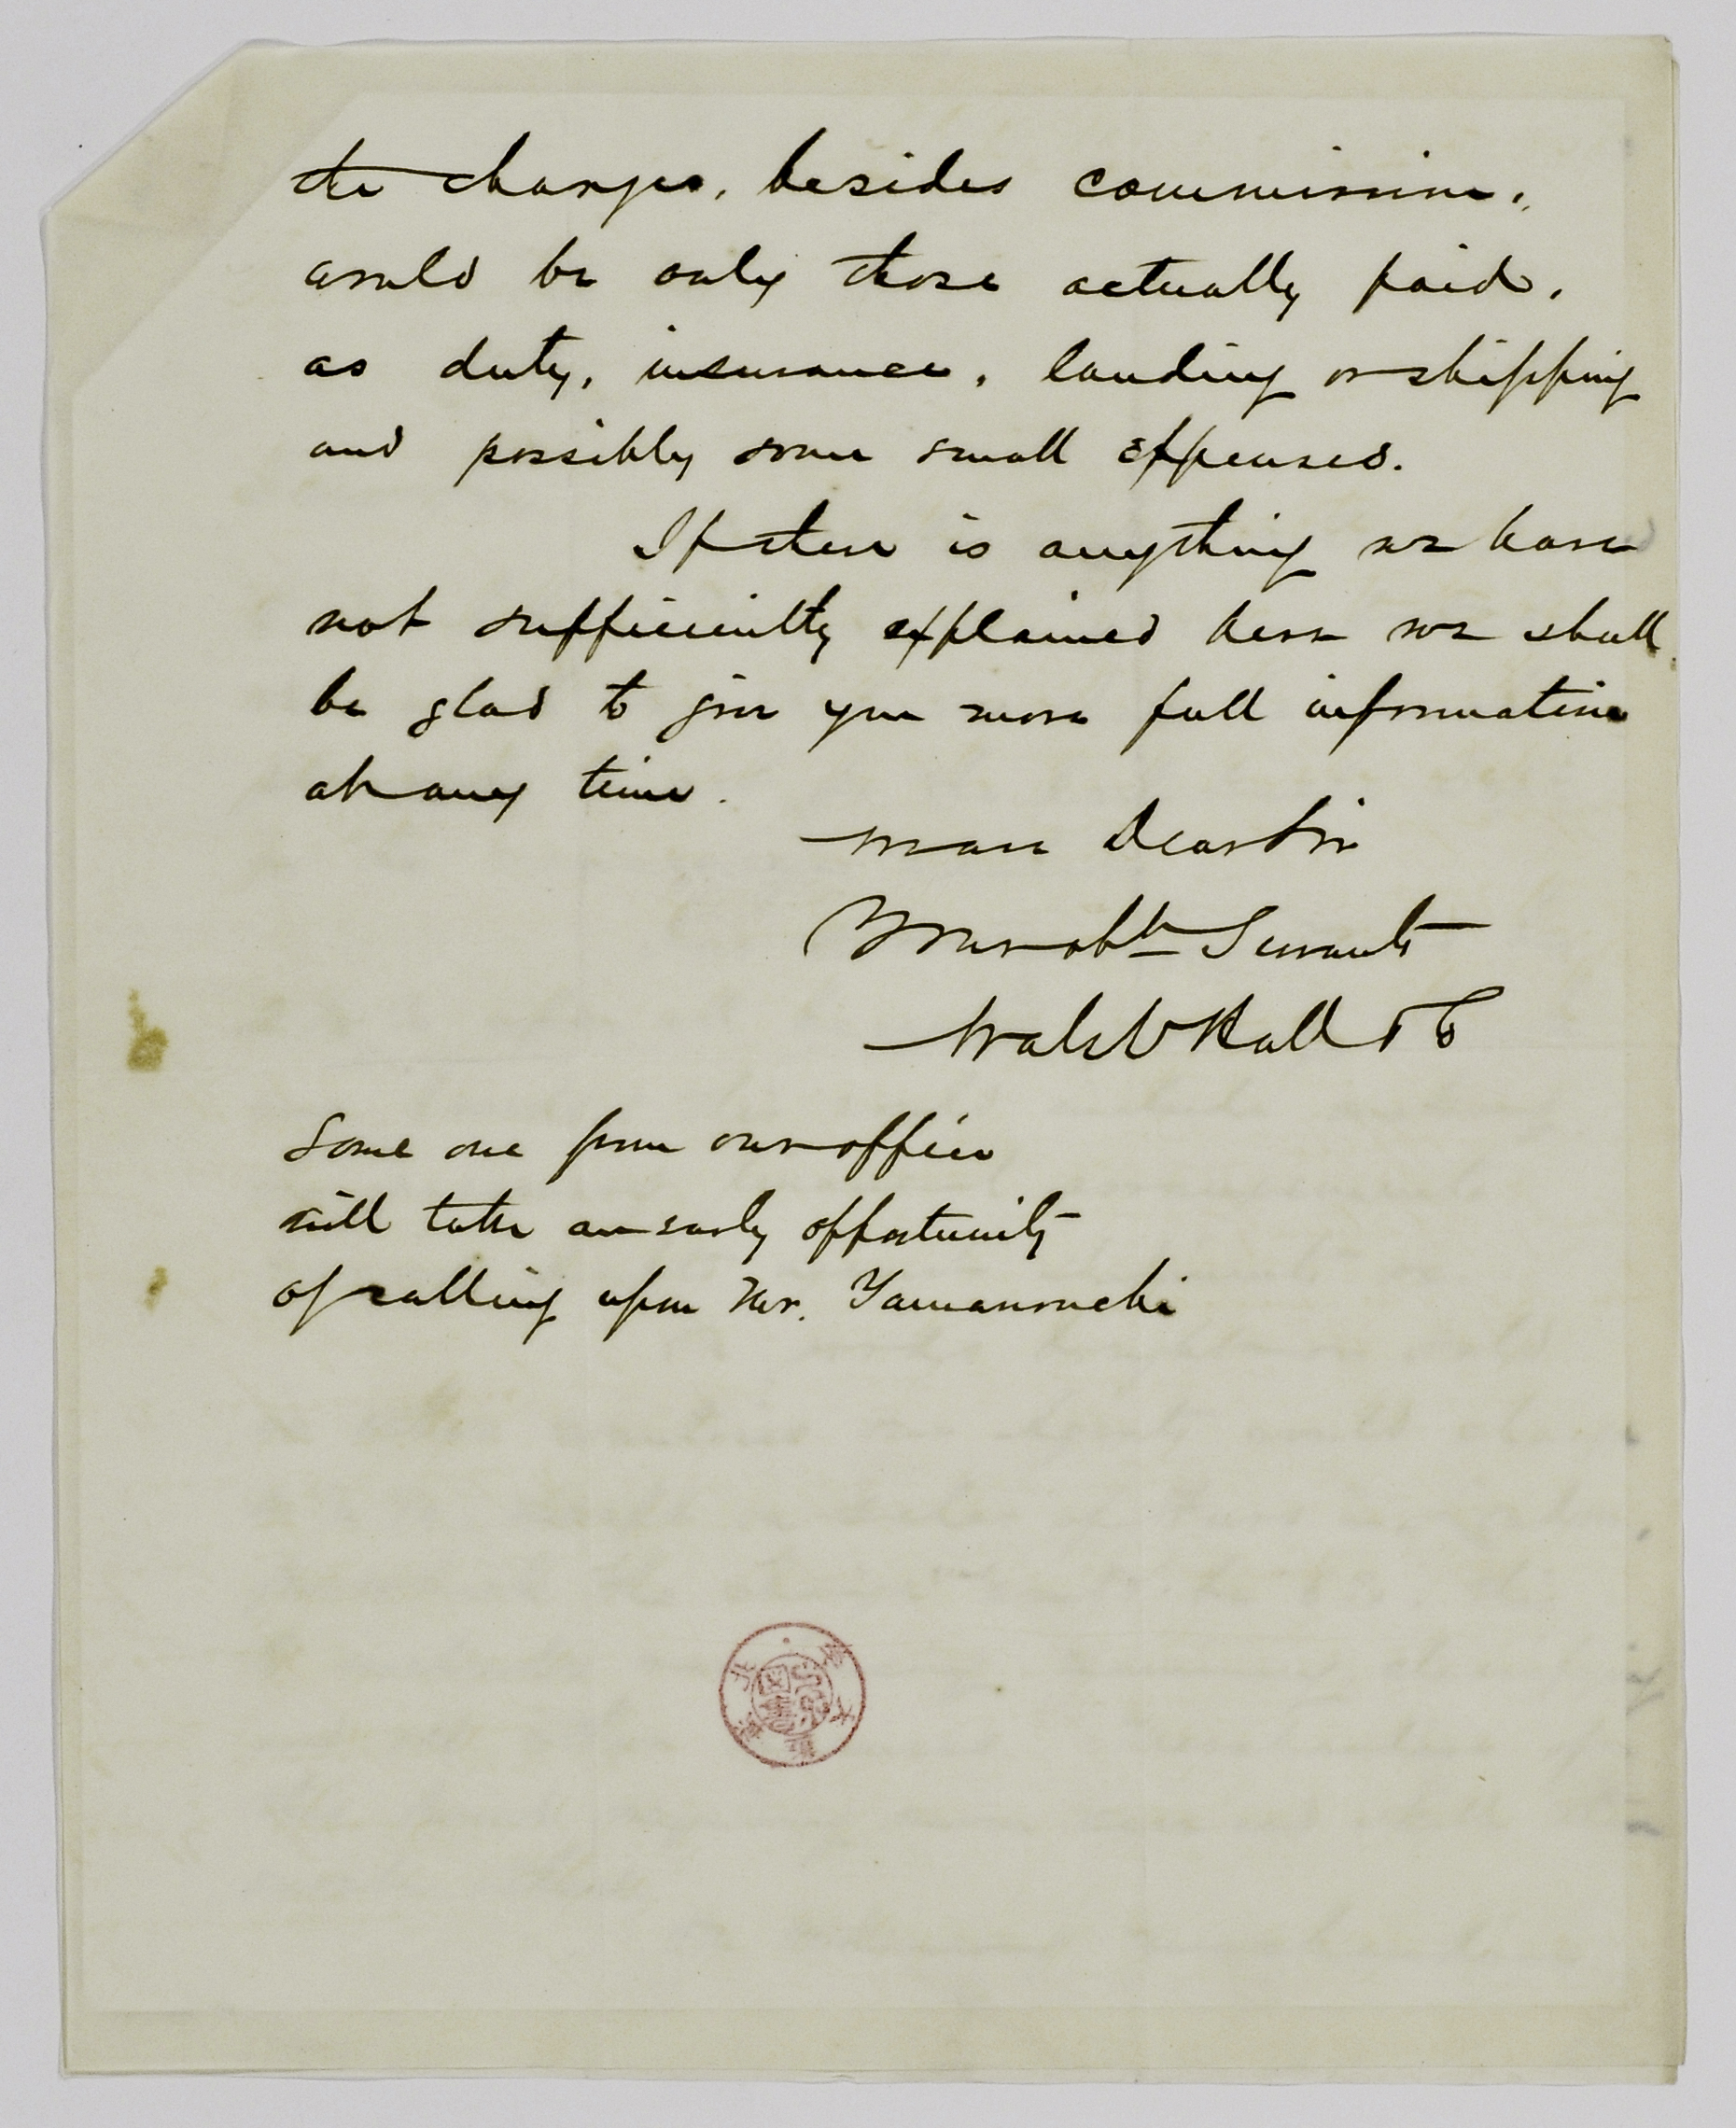 the charges, besides commission,
would be only those actually paid,
as duty, insurance, landing or shipping
and possibly some small expenses.
If there is anything we have
not sufficiently explained here we shall
be glad to give you more full information
at any time.
We are Dear Sir
Your obt Servants
Walsh Hall & Co
Some one from our office
will take an early opportunity
of calling upon Mr. Yamanouchi